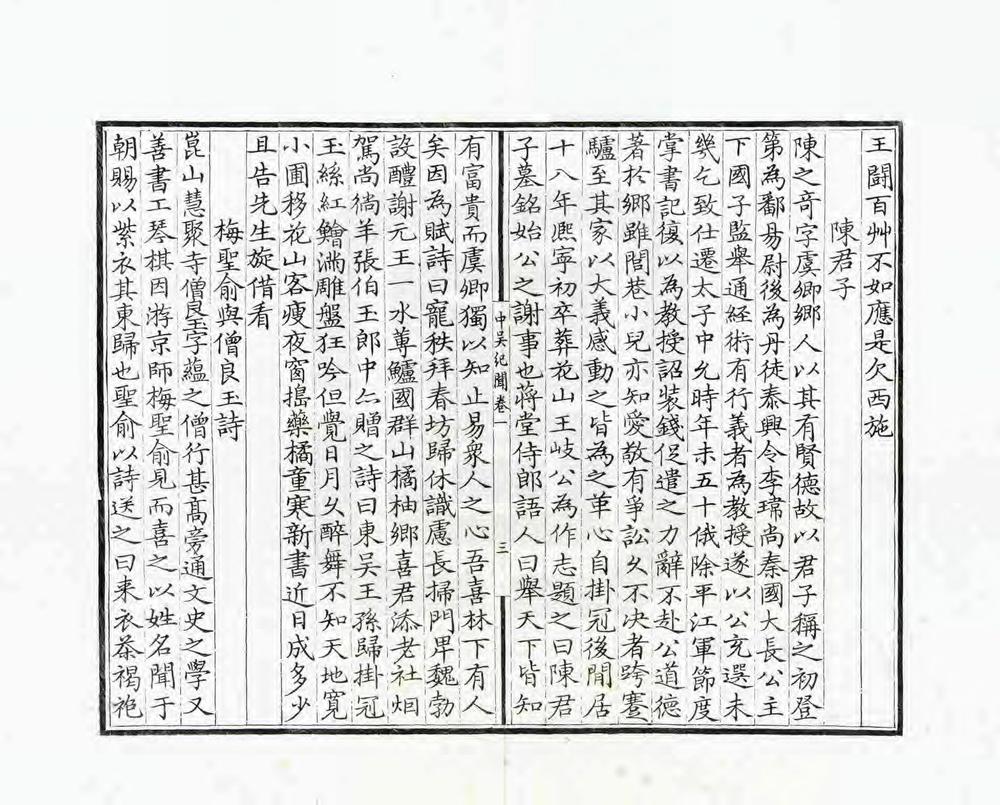 王闘百艸不如應是欠西施
陳君子
陳之奇字虞卿鄉人以其有賢德故以君子稱之初登
第為鄱昜尉後為丹徒泰興令李瑋尚秦國大長公主
下國子監舉通経術有行義者為教授遂以公充選未
幾乞致仕遷太子中允時年未五十俄除平江軍節度
掌書記復以為教授詔裝錢促遣之力辭不赴公道德
著於鄉雖閭巷小兒亦知愛敬有爭訟久不决者跨蹇
驢至其家以大義感動之皆為之革心自掛冠後閒居
十八年熈寧初卒葬花山王岐公為作志題之曰陳君
子墓銘始公之謝事也蔣堂侍郎語人曰舉天下皆知
中吴紀聞卷一
三
有富貴而虞卿獨以知止易衆人之心吾喜林下有人
矣因為賦詩曰寵秩拜春坊歸休識慮長掃門卑魏勃
設醴謝元王一水蓴鱸國群山橘柚鄉喜君添老社烟
駕尚徜羊張伯玉郎中亦贈之詩曰東吴王孫歸掛冠
玉絲紅鱠满雕盤狂吟但覺日月久醉舞不知天地寬
小圃移花山客瘦夜窗搗藥橘童寒新書近日成多少
且告先生旋借看
梅聖俞與僧良玉詩
崑山慧聚寺僧良玉字藴之僧行甚髙旁通文史之學又
善書工琴棋因游京師梅聖俞見而喜之以姓名聞于
朝賜以紫衣其東歸也聖俞以詩送之曰来衣茶褐袍